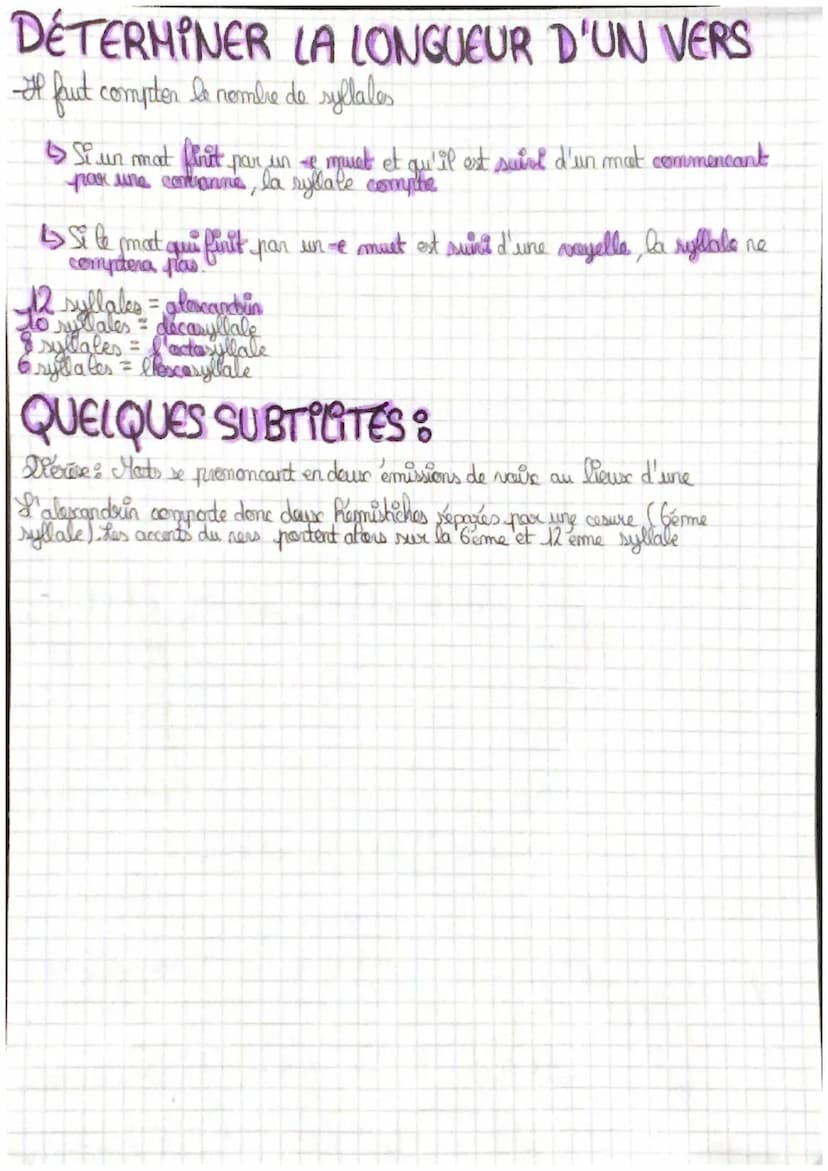 DÉTERMINER LA LONGUEUR D'UN VERS
-Il faut compter le nombre de syllabes
↳ Si un mot finit par un -e muet et qu'il est suivi d'un mot commencant
par une consonne, la syllabe compte
↳ Si le mot qui finit par un -e muet est suivi d'une voyelle, la syllabe ne
comptera pas.
12 syllabes = alexandrin
10 syllabes = décasyllabe
8 syllabes = l'octosyllabe
6 syllabes =
QUELQUES SUBTILITÉS :
Diérèse : Mots se prononcant en deux émissions de voix au lieux d'une
L'alexandrin comporte donc deux hémistiches séparés par une cesure (6éme
syllabe). Les accents du vers portent alors sur la 6eme et 12 éme syllabe